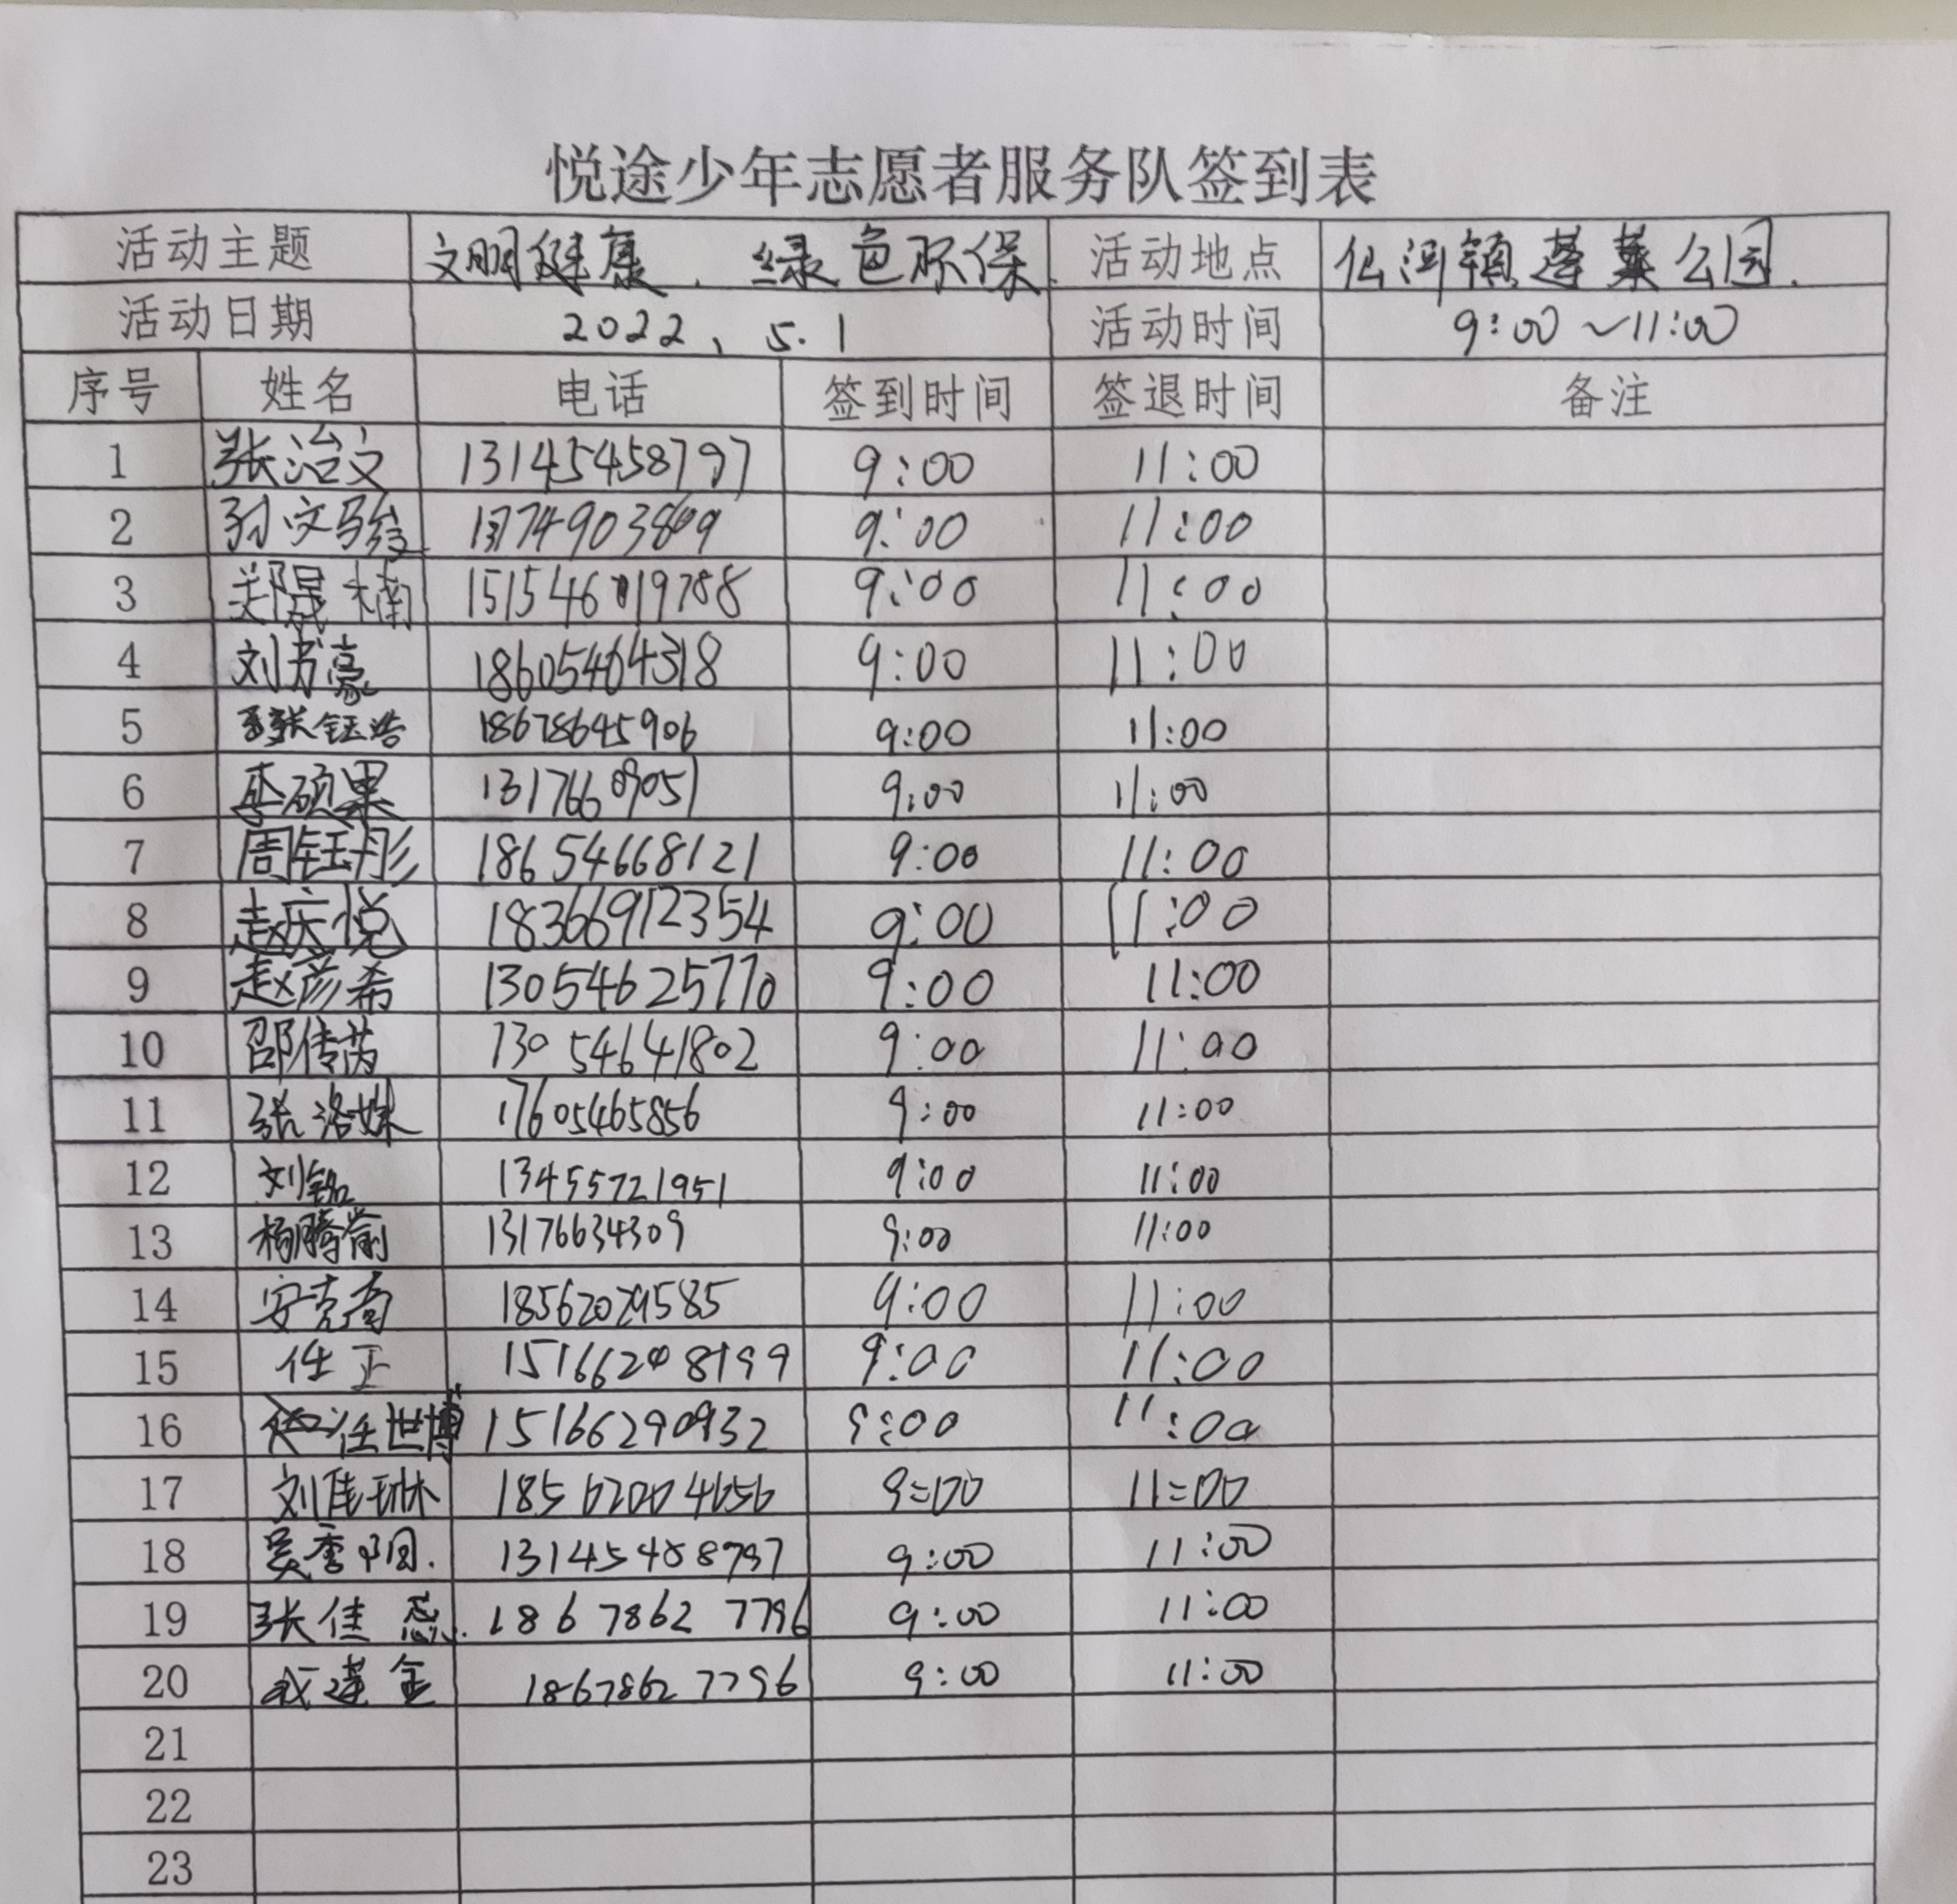 悦途少年志愿者服务队签到表
活动主题 文明健康、绿色环保 活动地点 仙河镇蓬莱公园.
活动日期 2022、5.1 活动时间 9:00~11:00
序号 姓名 电话 签到时间 签退时间 备注
1 张治文 13145458797 9:00 11:00
2 孙文骏 9:00 11:00
3 郑晟楠 9:00 11:00
4 刘书豪 18605464318 9:00 11:00
5 张钰浩 18678645906 9:00 11:00
6 李硕果 9:00 11:00
7 周钰彤 18654668121 9:00 11:00
8 赵庆悦 18366912354 9:00 11:00
9 赵彦希 13054625770 9:00 11:00
10 邵传芮 13054641802 9:00 11:00
11 张洛姝 17605465856 9:00 11:00
12 刘铭 13455721951 9:00 11:00
13 杨腾 13176634309 9:00 11:00
14 安克 18562029585 9:00 11:00
15 任正 15166208199 9:00 11:00
16 任世博 15166290932 9:00 11:00
17 刘佳琳 18562004656 9=00 11=00
18 吴季阳. 9:00 11:00
19 张佳蕊. 18678627796 9:00 11:00
20 莲金 18678627796 9:00 11:00
21
22
23